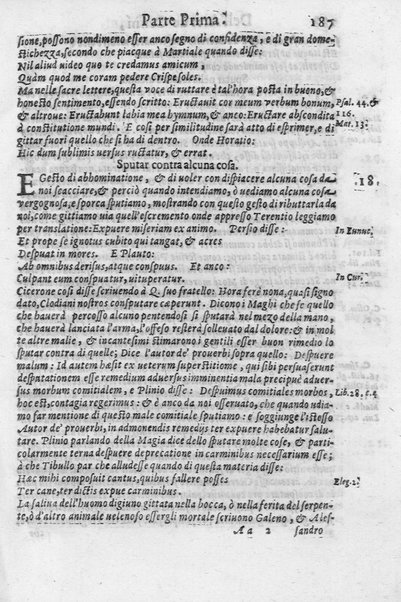 Parte Prima. 187
sione, possono nondimeno esser anco segno di confidenza, e di gran dome-
stichezza, secondo che piacque à Martiale quando disse:
Nil aliud video quo te credamus amicum,
Quàm quod me coram pedere Crispe soles.
Ma nelle sacre lettere, questa voce di ruttare è tal'hora posta in buono, &
honesto sentimento, essendo scritto: Eructauit cor meum verbum bonum, Psal. 44. &
& altroue: Eructabunt labia mea hymnum, & anco: Eructare abscondita 116.
à constitutione mundi. E così per similitudine sarà atto di esprimer, e di Mat. 13.
gittar fuori quello che si ha di dentro. Onde Horatio:
Hic dum sublimis versus ructatur, & errat.
Sputar contra alcuna cosa.
E Gesto di abbominatione, & di uoler con dispiacere alcuna cosa da 18.
noi scacciare, & perciò quando intendiamo, ò uediamo alcuna cosa
vergognosa, e sporca sputiamo, mostrando con questo gesto di ributtarla da
noi, come gittiamo uia quell'escremento onde appresso Terentio leggiamo
per translatione: Expuere miseriam ex animo. Persio disse: In Eunuc.
Et prope se ignotus cubito qui tangat, & acres
Despuat in mores. E Plauto:
Ab omnibus derisus, atque conspuus. Et anco: In Cur.
Culpant eum conspuatur, vituperatur.
Cicerone così disse scriuendo à Q. suo fratello: Hora ferè nona, quasi signo
dato, Clodiani nostros consputare cæperunt. Dicono i Maghi che se quello
che hauerà percosso alcuno pentendosi si sputarà nel mezo della mano,
che hauerà lanciata l'arma, l'offeso resterà solleuato dal dolore: & in mol
te altre malie, & incantesimi stimarono i gentili esser buon rimedio lo
sputar contra di quelle; Dice l'autor de' prouerbi sopra quello: Despuere
malum: Id autem hæsit ex ueterum superstitione, qui sibi persuaserunt
desputationem esse remedium aduersus imminentia mala præcipuè aduer-
sus morbum comitialem, e Plinio disse: Despuimus comitiales morbos, Lib. 28. c. 4.
hoc est, contagia regerimus: & è anco da noi osseruato, che quando udia-
mo far mentione di questo male comitiale sputiamo: e soggiunge l'istesso
Autor de' prouerbi, in admonendis remedys ter expuere habebatur saluta-
re. Plinio parlando della Magia dice dello sputare molte cose, & parti-
colarmente terna despuere deprecatione in carminibus necessarium esse;
à che Tibullo par che alludesse quando di questa materia disse:
Hæc mihi composuit cantus, quibus fallere posses Eleg. 2.
Ter cane, ter dictis expue carminibus.
La saliua dell'huomo digiuno gittata nella bocca, ò nella ferita del serpen-
te, ò d'altro animale uelenoso essergli mortale scriuono Galeno, & Ales-
A a 2 sandro